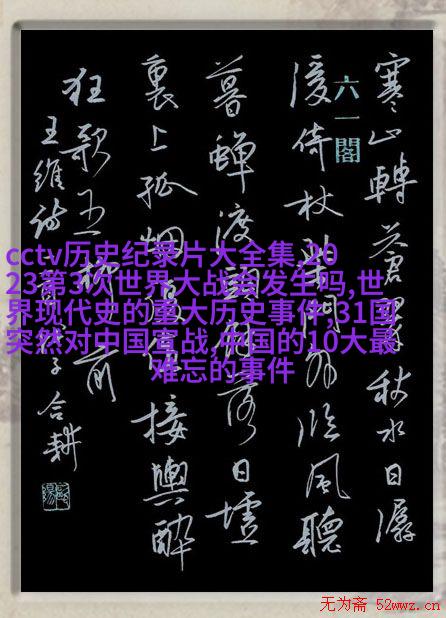 寒山轉蒼翠秋水日潺
六一閣
湲倚杖柴門外臨風聽
暮蟬渡頭餘落日墟
裏上孤烟復值接輿醉
狂歌五柳前
王維詩
合耕
cctv历史纪录片大全集,20
23第3次世界大战会发生吗,世
界现代史的重大历史事件,31国
突然对中国宣战,中国的10大最
难忘的事件
无为斋 52wwz.cn